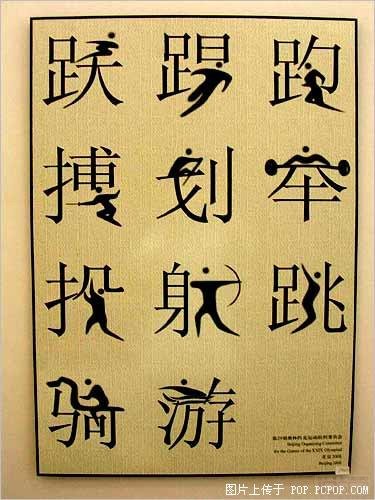 跃 踢 跑
搏 划 举
投 射 跳
骑 游
第29届奥林匹克运动会组织委员会
Beijing Organizing Committee
for the Games of the XXIX Olympiad
北京2008
Beijing 2008
图片上传于 POP.PCPOP.COM